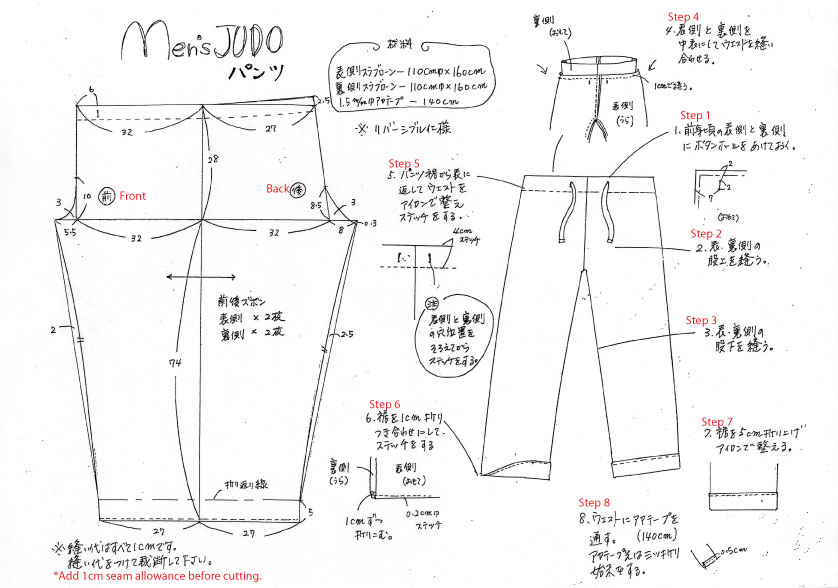 Men's JUDO
パンツ
材料
表側 スラブローン — 110cm巾×160cm
裏側 スラブローン — 110cm巾×160cm
1.5m/m巾アヤテープ — 140cm
※ リバーシブル仕様
6
1
2.5
32
27
28
10
前
Front
Back
後
3
8.5
3
0.3
5.5
32
32
8
前後ズボン
表側 × 2枚
裏側 × 2枚
2
2.5
74
折り返り線
5
27
27
※縫い代はすべて1cmです。
縫い代をつけて裁断して下さい。
*Add 1cm seam allowance before cutting.
Step 4
4. 表側と裏側を
中表にしてウエストを縫い
合わせる。
裏側
(おもて)
1cmで縫う。
表側
(うら)
Step 1
1. 前身頃の表側と裏側
にボタンホールをあけておく。
2
2
7
(おもて)
Step 5
5. パンツ裾から表に
返してウエストを
アイロンで整え
ステッチをする。
4cm
ステッチ
注
表側と裏側
の穴位置を
そろえてから
ステッチをする。
Step 2
2. 表・裏側の
股上を縫う。
Step 3
3. 表・裏側の
股下を縫う。
Step 6
6. 裾を1cm折り
つき合わせにして
ステッチをする
裏側
(うら)
表側
(おもて)
1cmずつ
折りこむ。
0.2cm巾
ステッチ
Step 7
7. 裾を5cm折り上げ
アイロンで整える。
Step 8
8. ウエストにアヤテープを
通す。 (140cm)
アヤテープ先は三ツ折り
始末する。
0.5cm